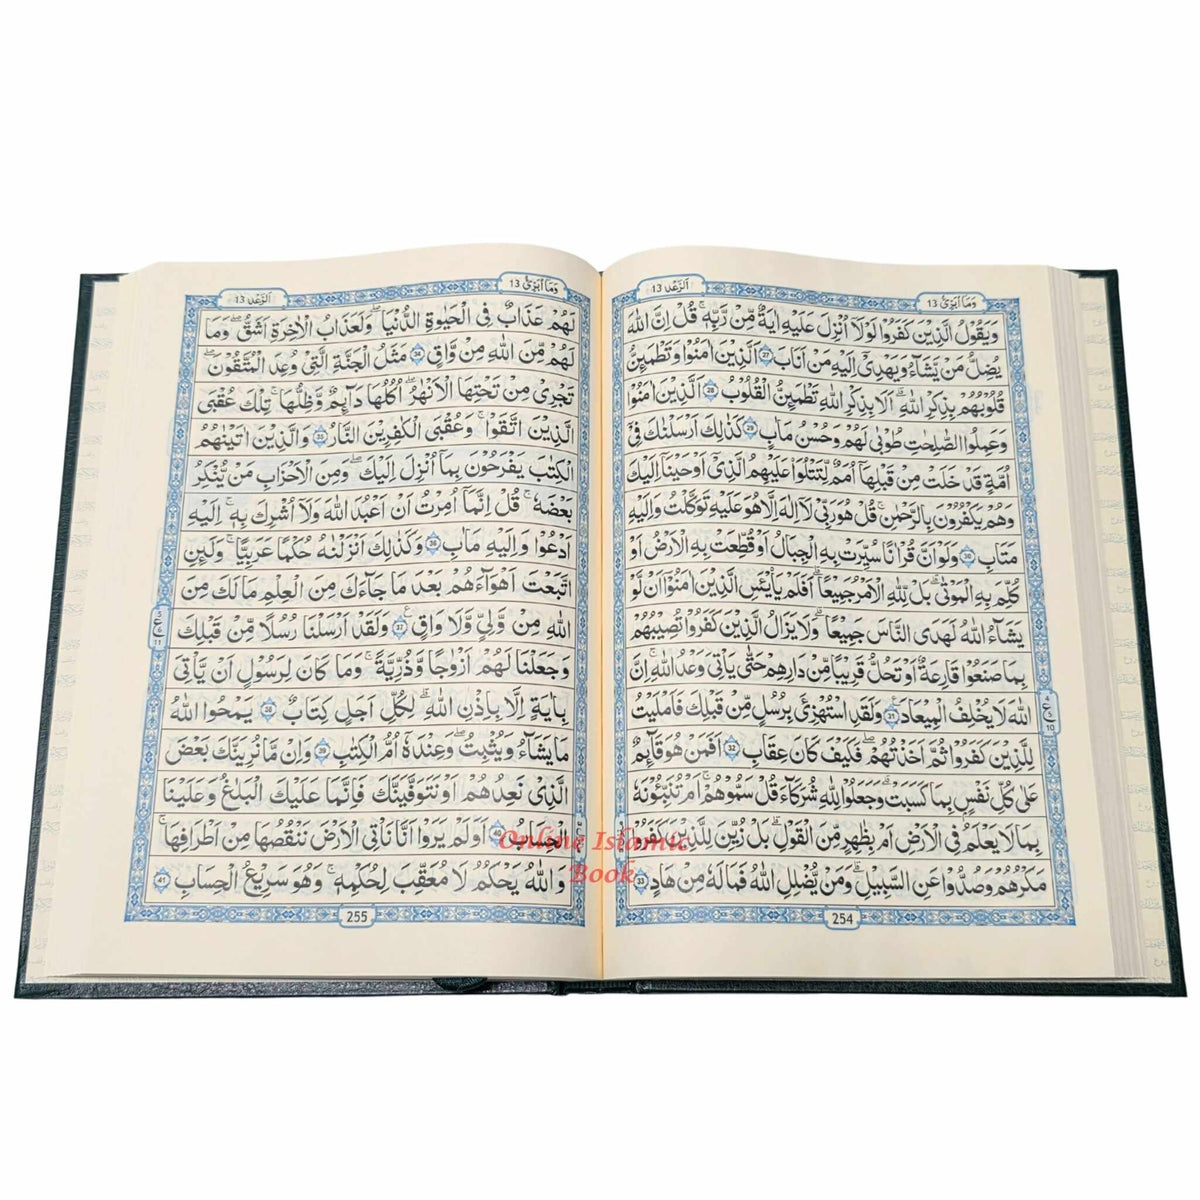 اَلرَّعْد 13
وَمَآ اُبَرِّئُ 13
وَيَقُوْلُ الَّذِيْنَ كَفَرُوْا لَوْلَآ اُنْزِلَ عَلَيْهِ اٰيَةٌ مِّنْ رَّبِّهٖ ؕ قُلْ اِنَّ اللّٰهَ
يُضِلُّ مَنْ يَّشَآءُ وَيَهْدِيْٓ اِلَيْهِ مَنْ اَنَابَ 27 اَلَّذِيْنَ اٰمَنُوْا وَتَطْمَئِنُّ
قُلُوْبُهُمْ بِذِكْرِ اللّٰهِ ؕ اَلَا بِذِكْرِ اللّٰهِ تَطْمَئِنُّ الْقُلُوْبُ 28 اَلَّذِيْنَ اٰمَنُوْا
وَعَمِلُوا الصّٰلِحٰتِ طُوْبٰى لَهُمْ وَحُسْنُ مَاٰبٍ 29 كَذٰلِكَ اَرْسَلْنٰكَ فِيْٓ
اُمَّةٍ قَدْ خَلَتْ مِنْ قَبْلِهَآ اُمَمٌ لِّتَتْلُوَا۟ عَلَيْهِمُ الَّذِيْٓ اَوْحَيْنَآ اِلَيْكَ
وَهُمْ يَكْفُرُوْنَ بِالرَّحْمٰنِ ؕ قُلْ هُوَ رَبِّيْ لَآ اِلٰهَ اِلَّا هُوَ ۚ عَلَيْهِ تَوَكَّلْتُ وَاِلَيْهِ
مَتَابِ 30 وَلَوْ اَنَّ قُرْاٰنًا سُيِّرَتْ بِهِ الْجِبَالُ اَوْ قُطِّعَتْ بِهِ الْاَرْضُ اَوْ
كُلِّمَ بِهِ الْمَوْتٰى ؕ بَلْ لِّلّٰهِ الْاَمْرُ جَمِيْعًا ؕ اَفَلَمْ يَايْـَٔسِ الَّذِيْنَ اٰمَنُوْٓا اَنْ لَّوْ
يَشَآءُ اللّٰهُ لَهَدَى النَّاسَ جَمِيْعًا ؕ وَلَا يَزَالُ الَّذِيْنَ كَفَرُوْا تُصِيْبُهُمْ
بِمَا صَنَعُوْا قَارِعَةٌ اَوْ تَحُلُّ قَرِيْبًا مِّنْ دَارِهِمْ حَتّٰى يَاْتِيَ وَعْدُ اللّٰهِ ؕ اِنَّ
اللّٰهَ لَا يُخْلِفُ الْمِيْعَادَ 31 وَلَقَدِ اسْتُهْزِئَ بِرُسُلٍ مِّنْ قَبْلِكَ فَاَمْلَيْتُ
لِلَّذِيْنَ كَفَرُوْا ثُمَّ اَخَذْتُهُمْ ۖ فَكَيْفَ كَانَ عِقَابِ 32 اَفَمَنْ هُوَ قَآئِمٌ
عَلٰى كُلِّ نَفْسٍۭ بِمَا كَسَبَتْ ۚ وَجَعَلُوْا لِلّٰهِ شُرَكَآءَ ؕ قُلْ سَمُّوْهُمْ ؕ اَمْ تُنَبِّئُوْنَهٗ
بِمَا لَا يَعْلَمُ فِي الْاَرْضِ اَمْ بِظَاهِرٍ مِّنَ الْقَوْلِ ؕ بَلْ زُيِّنَ لِلَّذِيْنَ كَفَرُوْا
مَكْرُهُمْ وَصُدُّوْا عَنِ السَّبِيْلِ ؕ وَمَنْ يُّضْلِلِ اللّٰهُ فَمَا لَهٗ مِنْ هَادٍ 33
4
ع
10
254
اَلرَّعْد 13
وَمَآ اُبَرِّئُ 13
لَهُمْ عَذَابٌ فِي الْحَيٰوةِ الدُّنْيَا وَلَعَذَابُ الْاٰخِرَةِ اَشَقُّ ۚ وَمَا
لَهُمْ مِّنَ اللّٰهِ مِنْ وَّاقٍ 34 مَثَلُ الْجَنَّةِ الَّتِيْ وُعِدَ الْمُتَّقُوْنَ ؕ
تَجْرِيْ مِنْ تَحْتِهَا الْاَنْهٰرُ ؕ اُكُلُهَا دَآئِمٌ وَّظِلُّهَا ؕ تِلْكَ عُقْبَى
الَّذِيْنَ اتَّقَوْا ۖ وَّعُقْبَى الْكٰفِرِيْنَ النَّارُ 35 وَالَّذِيْنَ اٰتَيْنٰهُمُ
الْكِتٰبَ يَفْرَحُوْنَ بِمَآ اُنْزِلَ اِلَيْكَ وَمِنَ الْاَحْزَابِ مَنْ يُّنْكِرُ
بَعْضَهٗ ؕ قُلْ اِنَّمَآ اُمِرْتُ اَنْ اَعْبُدَ اللّٰهَ وَلَآ اُشْرِكَ بِهٖ ؕ اِلَيْهِ
اَدْعُوْا وَاِلَيْهِ مَاٰبِ 36 وَكَذٰلِكَ اَنْزَلْنٰهُ حُكْمًا عَرَبِيًّا ؕ وَلَئِنِ
اتَّبَعْتَ اَهْوَآءَهُمْ بَعْدَ مَا جَآءَكَ مِنَ الْعِلْمِ مَا لَكَ مِنَ
اللّٰهِ مِنْ وَّلِيٍّ وَّلَا وَاقٍ 37 وَلَقَدْ اَرْسَلْنَا رُسُلًا مِّنْ قَبْلِكَ
وَجَعَلْنَا لَهُمْ اَزْوَاجًا وَّذُرِّيَّةً ؕ وَمَا كَانَ لِرَسُوْلٍ اَنْ يَّاْتِيَ
بِاٰيَةٍ اِلَّا بِاِذْنِ اللّٰهِ ؕ لِكُلِّ اَجَلٍ كِتَابٌ 38 يَمْحُوا اللّٰهُ
مَا يَشَآءُ وَيُثْبِتُ ۖ وَعِنْدَهٗٓ اُمُّ الْكِتٰبِ 39 وَاِنْ مَّا نُرِيَنَّكَ بَعْضَ
الَّذِيْ نَعِدُهُمْ اَوْ نَتَوَفَّيَنَّكَ فَاِنَّمَا عَلَيْكَ الْبَلٰغُ وَعَلَيْنَا
الْحِسَابُ 40 اَوَلَمْ يَرَوْا اَنَّا نَاْتِي الْاَرْضَ نَنْقُصُهَا مِنْ اَطْرَافِهَا ؕ
وَاللّٰهُ يَحْكُمُ لَا مُعَقِّبَ لِحُكْمِهٖ ؕ وَهُوَ سَرِيْعُ الْحِسَابِ 41
ع
11
255
Online Islamic
Book